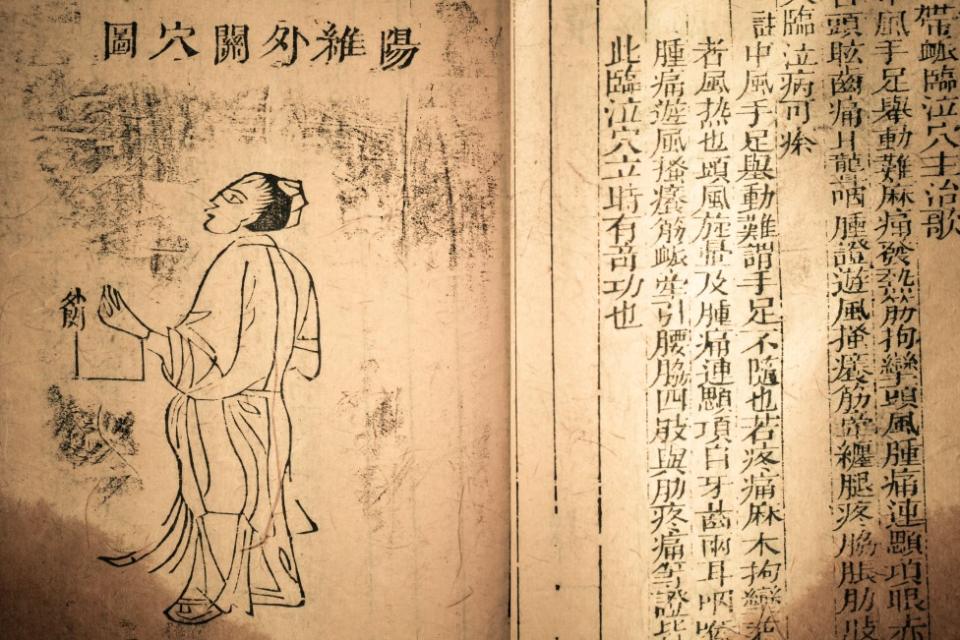 帶䘑臨泣穴主治歌
中風手足舉動難麻痛發熱筋拘攣頭風腫痛連顋項眼赤
頭眩齒痛耳聾咽腫證遊風搔癢筋牽纏腿疼脇脹肋肢
臨泣病可痊
註中風手足舉動難謂手足不隨也若疼痛麻木拘攣
者風熱也頭風旋暈及腫痛連顋項目牙齒兩耳咽喉
腫痛遊風搔癢筋䘑牽引腰脇四肢與肋疼痛等證
此臨泣穴立時有奇功也
陽維外關穴圖
外關